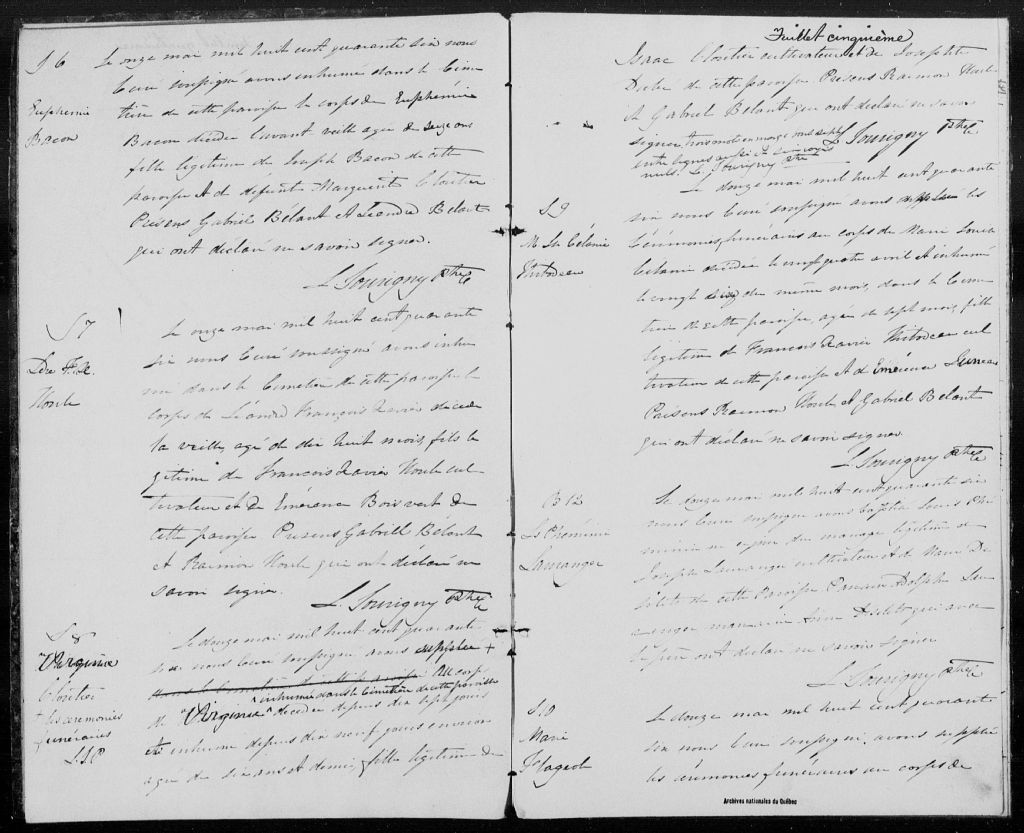 S 6
Euphemie
Bacon
Le onze mai mil huit cent quarante six nous
Curé soussigné avons inhumé dans le Cime
tière de cette paroisse le corps de Euphémie
Bacon décédée l'avant veille agée de seize ans
fille légitime de Joseph Bacon de cette
paroisse et de défunte Marguerite Cloutier
Présens Gabriel Bélant et Léandre Belant
qui ont déclaré ne savoir signer.
L. Souvigny Ptre
S 7
Lére F. X.
Houle
Le onze mai mil huit cent quarante
six nous Curé soussigné avons inhu
mé dans le Cimetière de cette paroisse le
corps de Léandre François Xavier décédé
la veille, agé de dix huit mois, fils lé
gitime de François Xavier Houle cul
tivateur et de Emérence Boisvert de
cette paroisse Présens Gabriell Bélant
et Raimon Houle qui ont déclaré ne
savoir signer.
L. Souvigny Ptre
S 8
"Virginie
Cloutier
+ les ceremonies
funéraires
L.S.P.
Le douze mai mil huit cent quarante
six nous Curé soussigné avons suppléé +
dans le Cimetière de cette paroisse au corps
inhumé dans le Cimetière de cette paroisse
de "Virginie" décédée depuis dix sept jours
et inhumée depuis dix neuf jours environ
agée de six ans et demi, fille légitime de
Juillet cinquième
Isaac Cloutier cultivateur et de Josephte
Dube de cette paroisse Présens Raimon Houle
et Gabriel Bélant qui ont déclaré ne savoir
signer, trois mots en marge nous six
entre lignes
nuls. L. Souvigny Ptre
L Souvigny Ptre
S 9
M. Ls Célanie
Thibodeau
Le douze mai mil huit cent quarante
six nous Curé soussigné avons suppléé les
Cérémonies funéraires au corps de Marie Louise
Célanie décédée le vingt quatre avril et inhumée
le vingt six du même mois, dans le Cime
tière de cette paroisse, agée de sept mois, fille
légitime de François Xavier Thibodeau cul
tivateur de cette paroisse et de Emérence
Présens Raimon Houle et Gabriel Belant
qui ont déclaré ne savoir signer.
L Souvigny Ptre
B 12
Ls Phéminie
Lauranger
Le douze mai mil huit cent quarante six
nous Curé soussigné avons baptisé Louis Phé
minie né du mariage légitime de
Joseph Lauranger cultivateur et de Marie De
de cette Paroisse Parrain Adolphe Lau
ranger marraine qui avec
le père ont déclaré ne savoir signer
L Souvigny Ptre
S 10
Marie
Pageot
Le douze mai mil huit cent quarante
six nous Curé soussigné avons suppléé
les cérémonies funéraires au corps de
Archives nationales du Québec